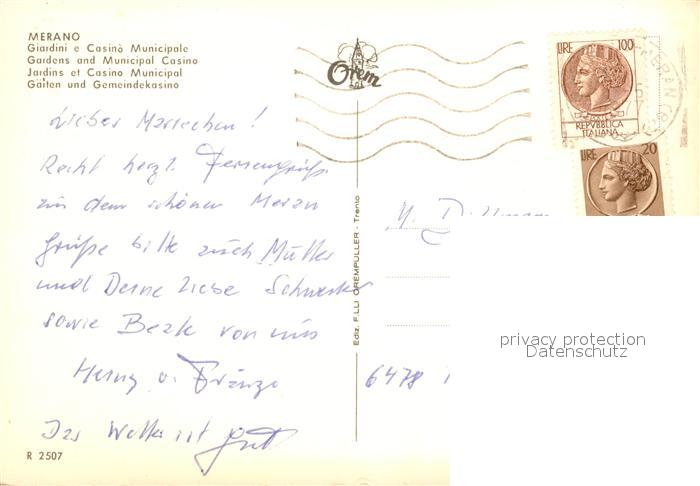 MERANO
Giardini e Casinò Municipale
Gardens and Municipal Casino
Jardins et Casino Municipal
Gärten und Gemeindekasino
Orem
LIRE 100
REPVBBLICA
ITALIANA
LIRE 20
Recht herzl. Feriengrüße
aus dem schönen Meran
Grüße bitte auch Mutter
und Deine liebe Schwester
sowie von uns
Das Wetter ist gut
R 2507
Ediz. F.LLI OREMPULLER - Trento
6478
privacy protection
Datenschutz